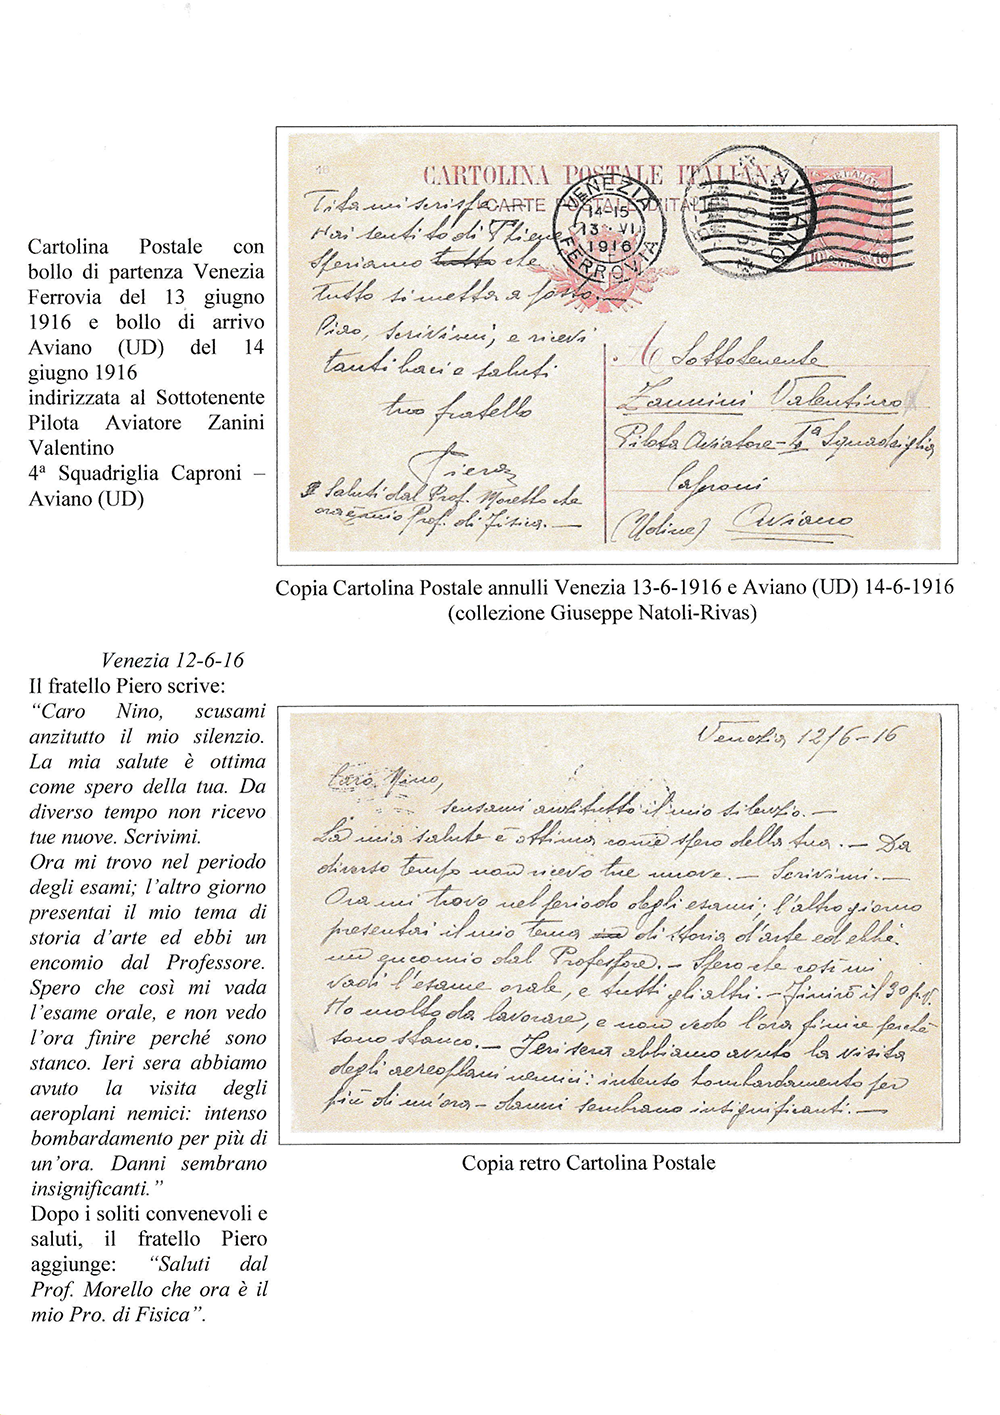 Cartolina Postale con
bollo di partenza Venezia
Ferrovia del 13 giugno
1916 e bollo di arrivo
Aviano (UD) del 14
giugno 1916
indirizzata al Sottotenente
Pilota Aviatore Zanini
Valentino
4ª Squadriglia Caproni –
Aviano (UD)
16
CARTOLINA POSTALE ITALIANA
(CARTE POSTALE D'ITALIE)
VENEZIA
14-15
13 VI
1916
FERROVIA
AVIANO
10 10
mi scrisse
Hai sentito di Thiene
Speriamo tutto che
tutto si metta a posto. —
Ciao, scrivimi, e ricevi
tanti baci e saluti
tuo fratello
Piero
Saluti dal Prof. Moretto che
ora è mio Prof. di Fisica. —
Al Sottotenente
Zannini Valentino
Pilota Aviatore - Squadriglia
Caproni
(Udine) Aviano
Copia Cartolina Postale annulli Venezia 13-6-1916 e Aviano (UD) 14-6-1916
(collezione Giuseppe Natoli-Rivas)
Venezia 12-6-16
Il fratello Piero scrive:
“Caro Nino, scusami
anzitutto il mio silenzio.
La mia salute è ottima
come spero della tua. Da
diverso tempo non ricevo
tue nuove. Scrivimi.
Ora mi trovo nel periodo
degli esami; l’altro giorno
presentai il mio tema di
storia d’arte ed ebbi un
encomio dal Professore.
Spero che così mi vada
l’esame orale, e non vedo
l’ora finire perché sono
stanco. Ieri sera abbiamo
avuto la visita degli
aeroplani nemici: intenso
bombardamento per più di
un’ora. Danni sembrano
insignificanti.”
Dopo i soliti convenevoli e
saluti, il fratello Piero
aggiunge: “Saluti dal
Prof. Morello che ora è il
mio Pro. di Fisica”.
Venezia 12/6-16
Caro Nino,
scusami anzitutto il mio silenzio. —
La mia salute è ottima come spero della tua. — Da
diverso tempo non ricevo tue nuove. — Scrivimi. —
Ora mi trovo nel periodo degli esami; l'altro giorno
presentai il mio tema di storia d'arte ed ebbi
un encomio dal Professore. — Spero che così mi
vadi l'esame orale, e tutti gli altri. — Finirò il 30 p.v.
Ho molto da lavorare, e non vedo l'ora finire perché
sono stanco. — Ieri sera abbiamo avuto la visita
degli aereoplani nemici: intenso bombardamento per
più di un'ora — danni sembrano insignificanti. —
Copia retro Cartolina Postale